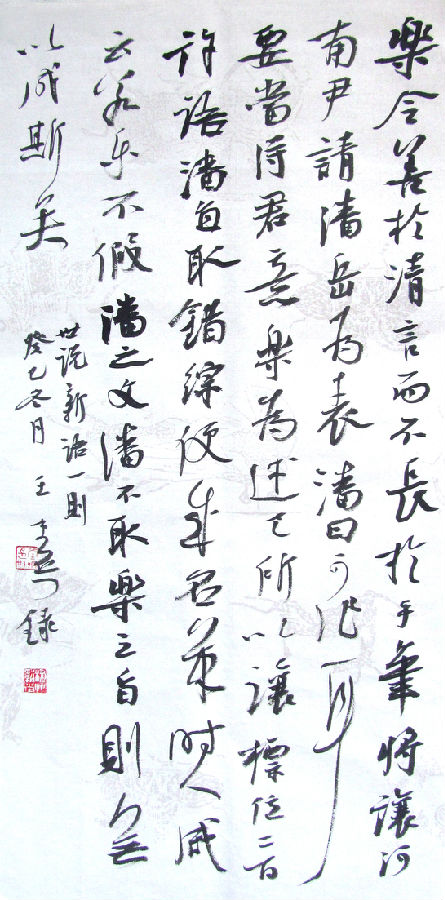 樂令善於清言而不長於手筆將讓河
南尹請潘岳為表潘曰可作耳
要當得君意樂為述己所以讓標位二百
許語潘直取錯綜便成名筆時人咸
云若樂不假潘之文潘不取樂之旨則無
以成斯矣
世说新语一則
癸巳冬月 王
錄